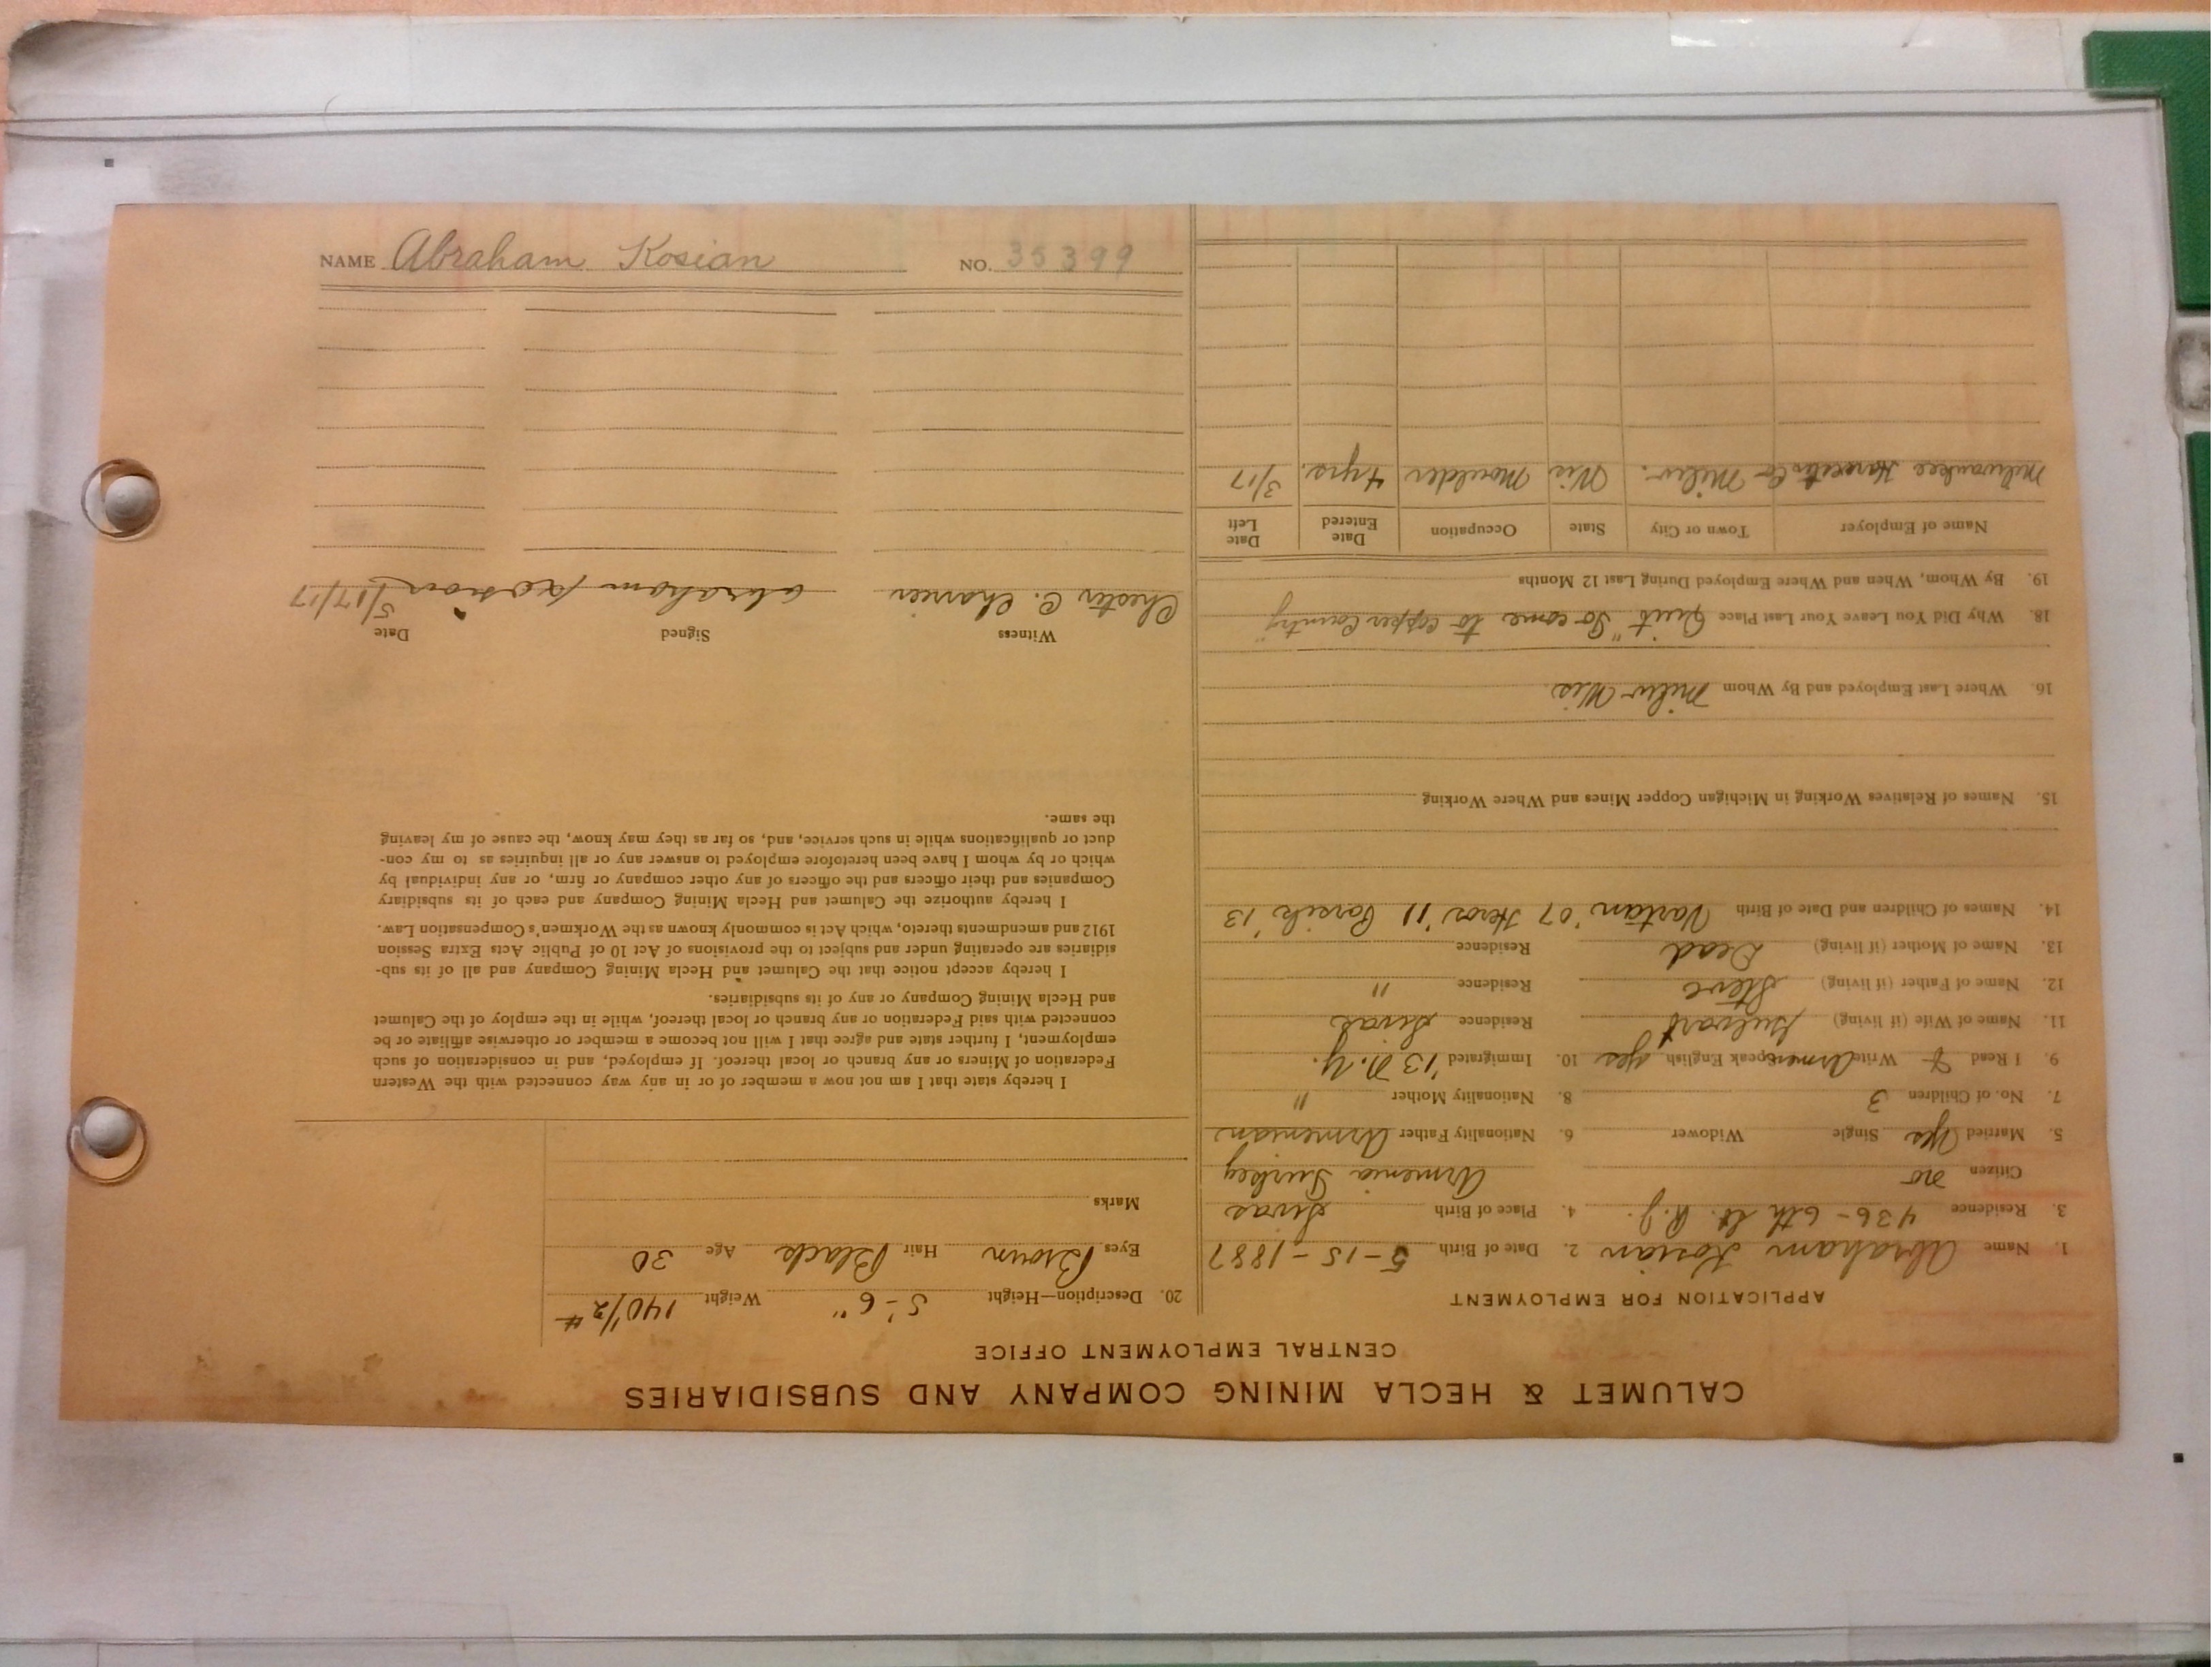 CALUMET & HECLA MINING COMPANY AND SUBSIDIARIES
CENTRAL EMPLOYMENT OFFICE
APPLICATION FOR EMPLOYMENT
1. Name Abraham Kosian 2. Date of Birth 5-15-1887
3. Residence 436-6th St. R.J. 4. Place of Birth Sivas
Citizen no Armenia Turkey
5. Married yes Single Widower 6. Nationality Father Armenian
7. No. of Children 3 8. Nationality Mother "
9. I Read & Write Armen Speak English yes 10. Immigrated '13 N.Y.
11. Name of Wife (if living) Residence Sivas
12. Name of Father (if living) Steve Residence "
13. Name of Mother (if living) Dead Residence
14. Names of Children and Date of Birth Vartan '07 Heros '11 '13
15. Names of Relatives Working in Michigan Copper Mines and Where Working
16. Where Last Employed and By Whom Milw Wis.
18. Why Did You Leave Your Last Place Quit "To come to Copper Country"
19. By Whom, When and Where Employed During Last 12 Months
Name of Employer Town or City State Occupation Date Entered Date Left
Milwaukee Harvester Co Milw. Wis Moulder 4 yrs. 3/17
20. Description—Height 5'-6" Weight 140 1/2 #
Eyes Brown Hair Black Age 30
Marks
I hereby state that I am not now a member of or in any way connected with the Western
Federation of Miners or any branch or local thereof. If employed, and in consideration of such
employment, I further state and agree that I will not become a member or otherwise affiliate or be
connected with said Federation or any branch or local thereof, while in the employ of the Calumet
and Hecla Mining Company or any of its subsidiaries.
I hereby accept notice that the Calumet and Hecla Mining Company and all of its sub-
sidiaries are operating under and subject to the provisions of Act 10 of Public Acts Extra Session
1912 and amendments thereto, which Act is commonly known as the Workmen's Compensation Law.
I hereby authorize the Calumet and Hecla Mining Company and each of its subsidiary
Companies and their officers and the officers of any other company or firm, or any individual by
which or by whom I have been heretofore employed to answer any or all inquiries as to my con-
duct or qualifications while in such service, and, so far as they may know, the cause of my leaving
the same.
Witness Signed Date
Chester C. Charrier abraham kosian 5/17/17
NAME Abraham Kosian NO. 35399